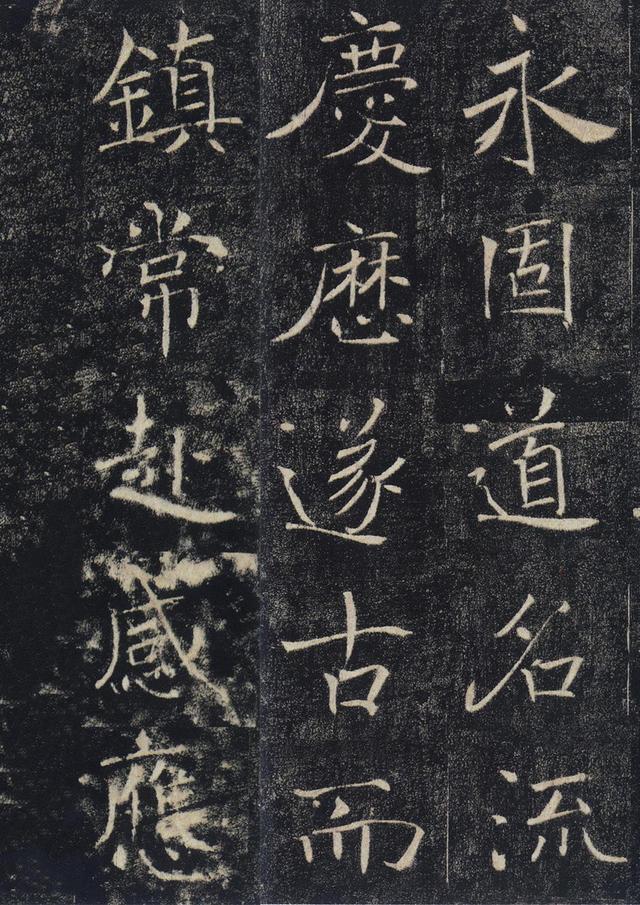 永固道名流
慶歴遂古而
鎮常赴感應